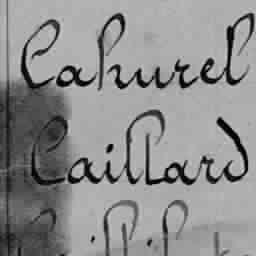 Cahurel
Caillard